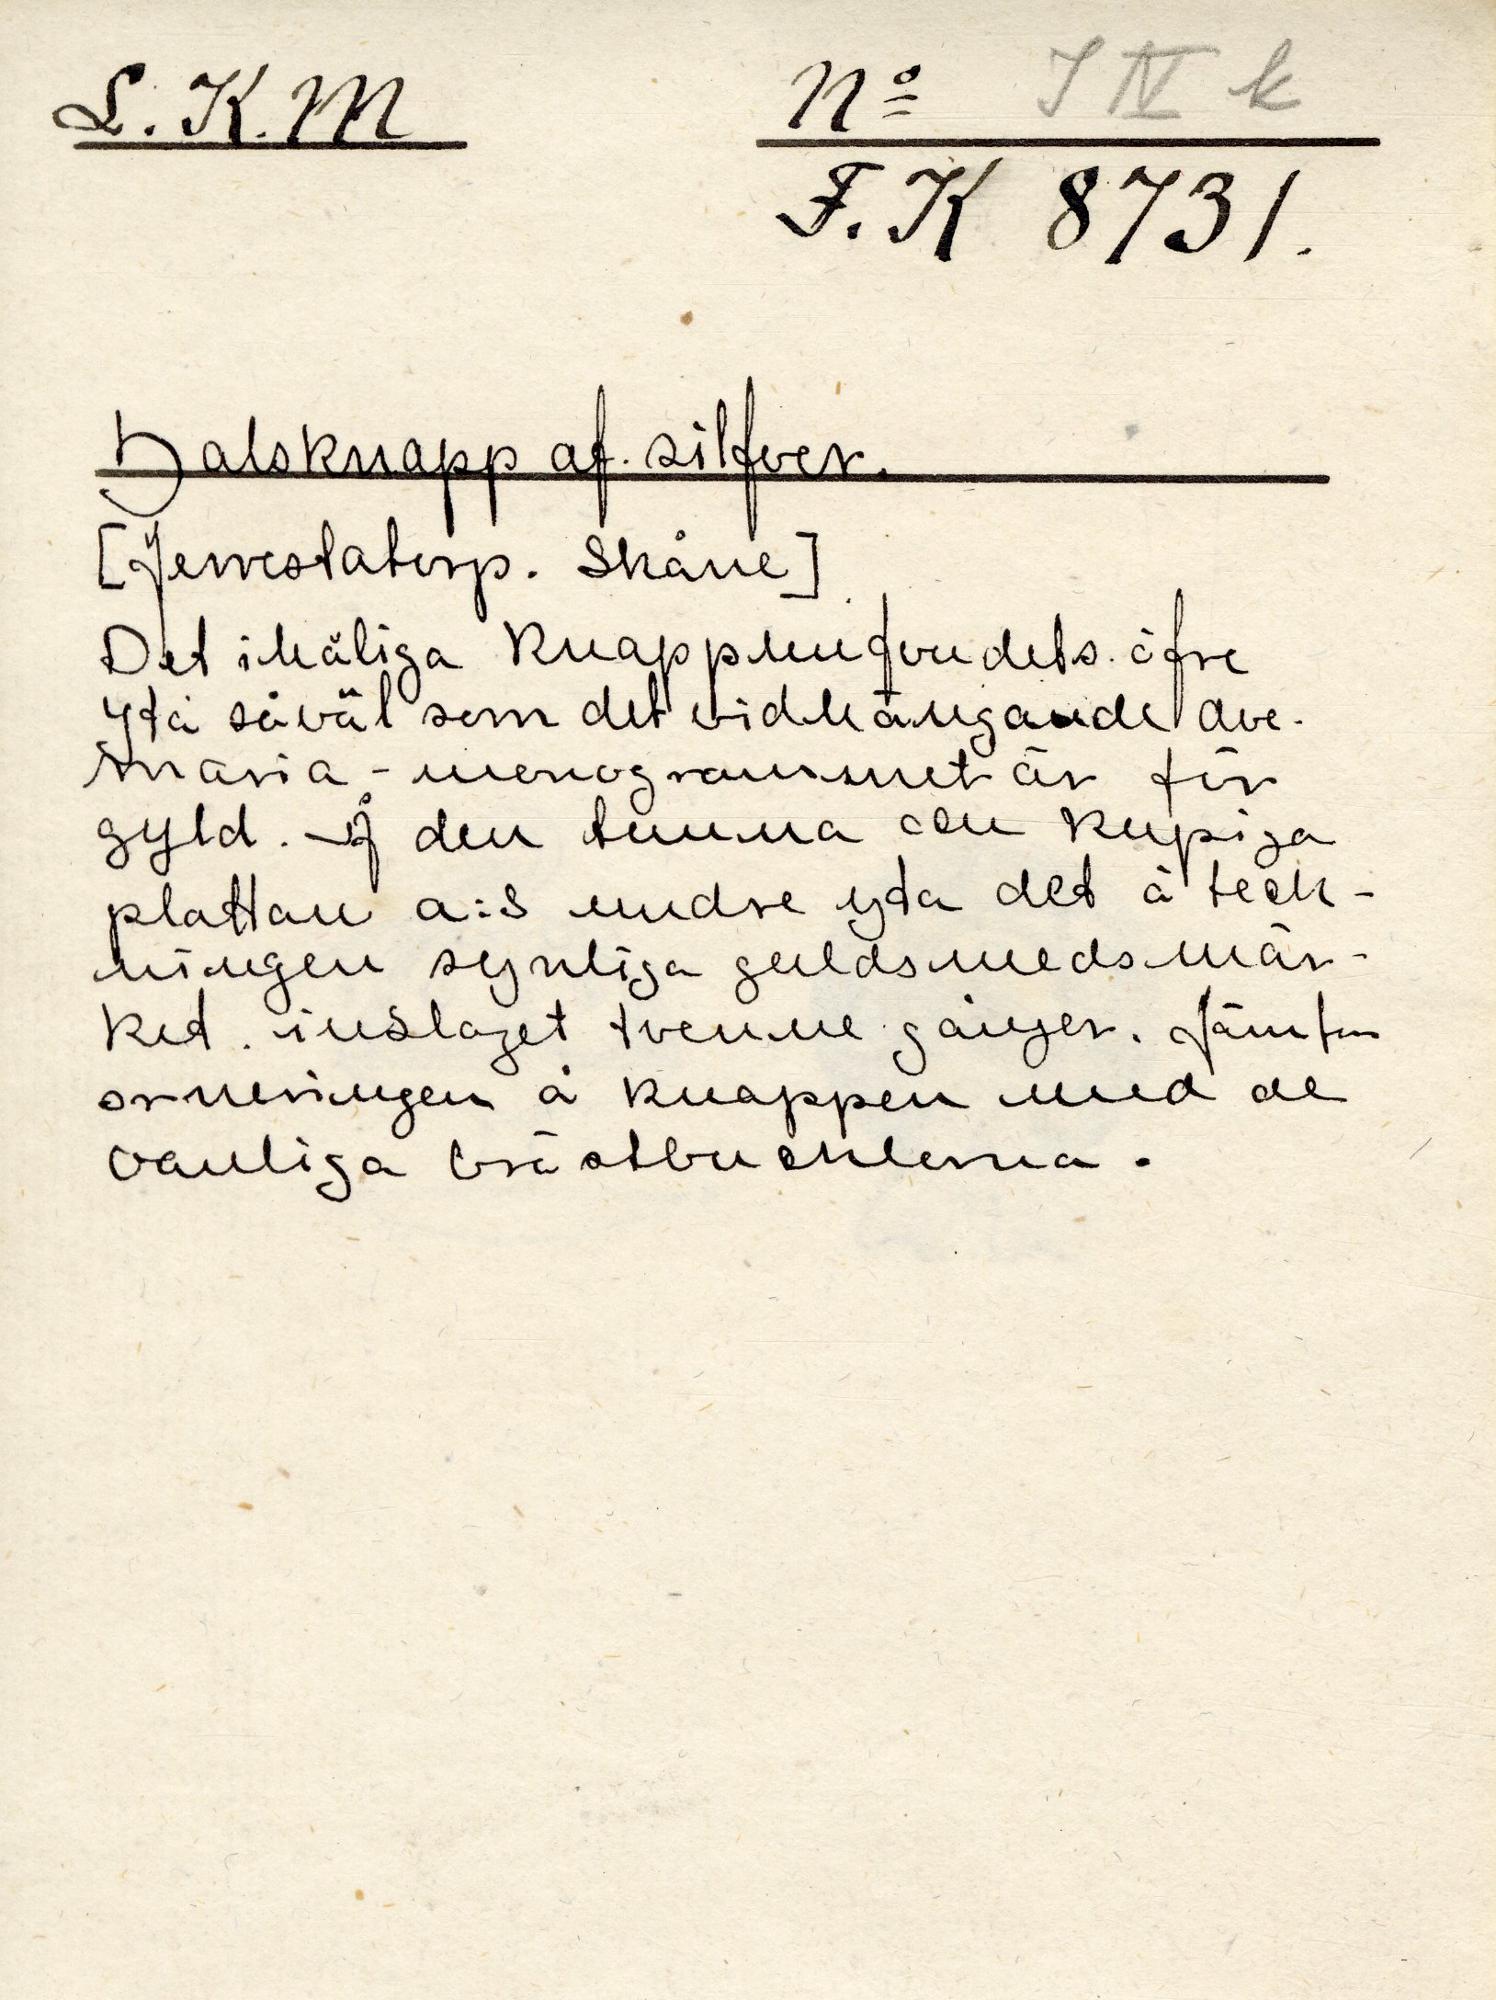 L.K.M
Nº I IV k
F.K 8731.
Halsknapp af silfver.
[Jerrestatorp. Skåne]
Det ihåliga knapphufvudets öfre
yta såväl som det vidhängande ave-
maria-monogrammet är för
gyld. Å den tunna kupiga
plattan a:s undre yta det å teck-
ningen synliga guldsmedsmär-
ket inslaget tvenne gånger. Jämför
orneringen å knappen med de
vanliga bröstbucklorna.